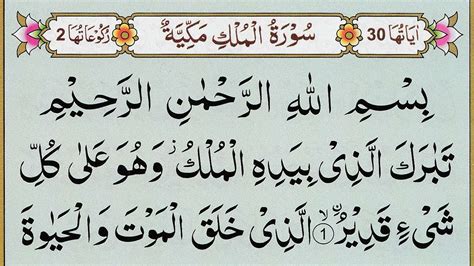 اٰيَاتُهَا 30 سُوْرَةُ الْمُلْكِ مَكِّيَّةٌ رُكُوْعَاتُهَا 2
بِسْمِ اللهِ الرَّحْمٰنِ الرَّحِيْمِ
تَبٰرَكَ الَّذِىْ بِيَدِهِ الْمُلْكُ ز وَهُوَ عَلٰى كُلِّ
شَىْءٍ قَدِيْرٌ ۙ﴿1﴾ الَّذِىْ خَلَقَ الْمَوْتَ وَالْحَيٰوةَ